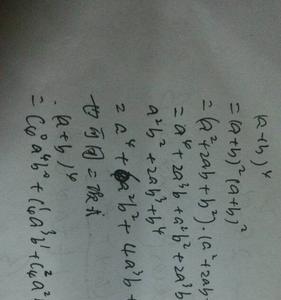 (a+b)^4
=(a+b)^2(a+b)^2
=(a^2+2ab+b^2)·(a^2+2ab
=a^4+2a^3b+a^2b^2+2a^3b
a^2b^2+2ab^3+b^4
=a^4+6a^2b^2+4a^3b+
也可用二项式
·(a+b)^4
=C_4^0a^4b^0+C_4^1a^3b^1+C_4^2a^2